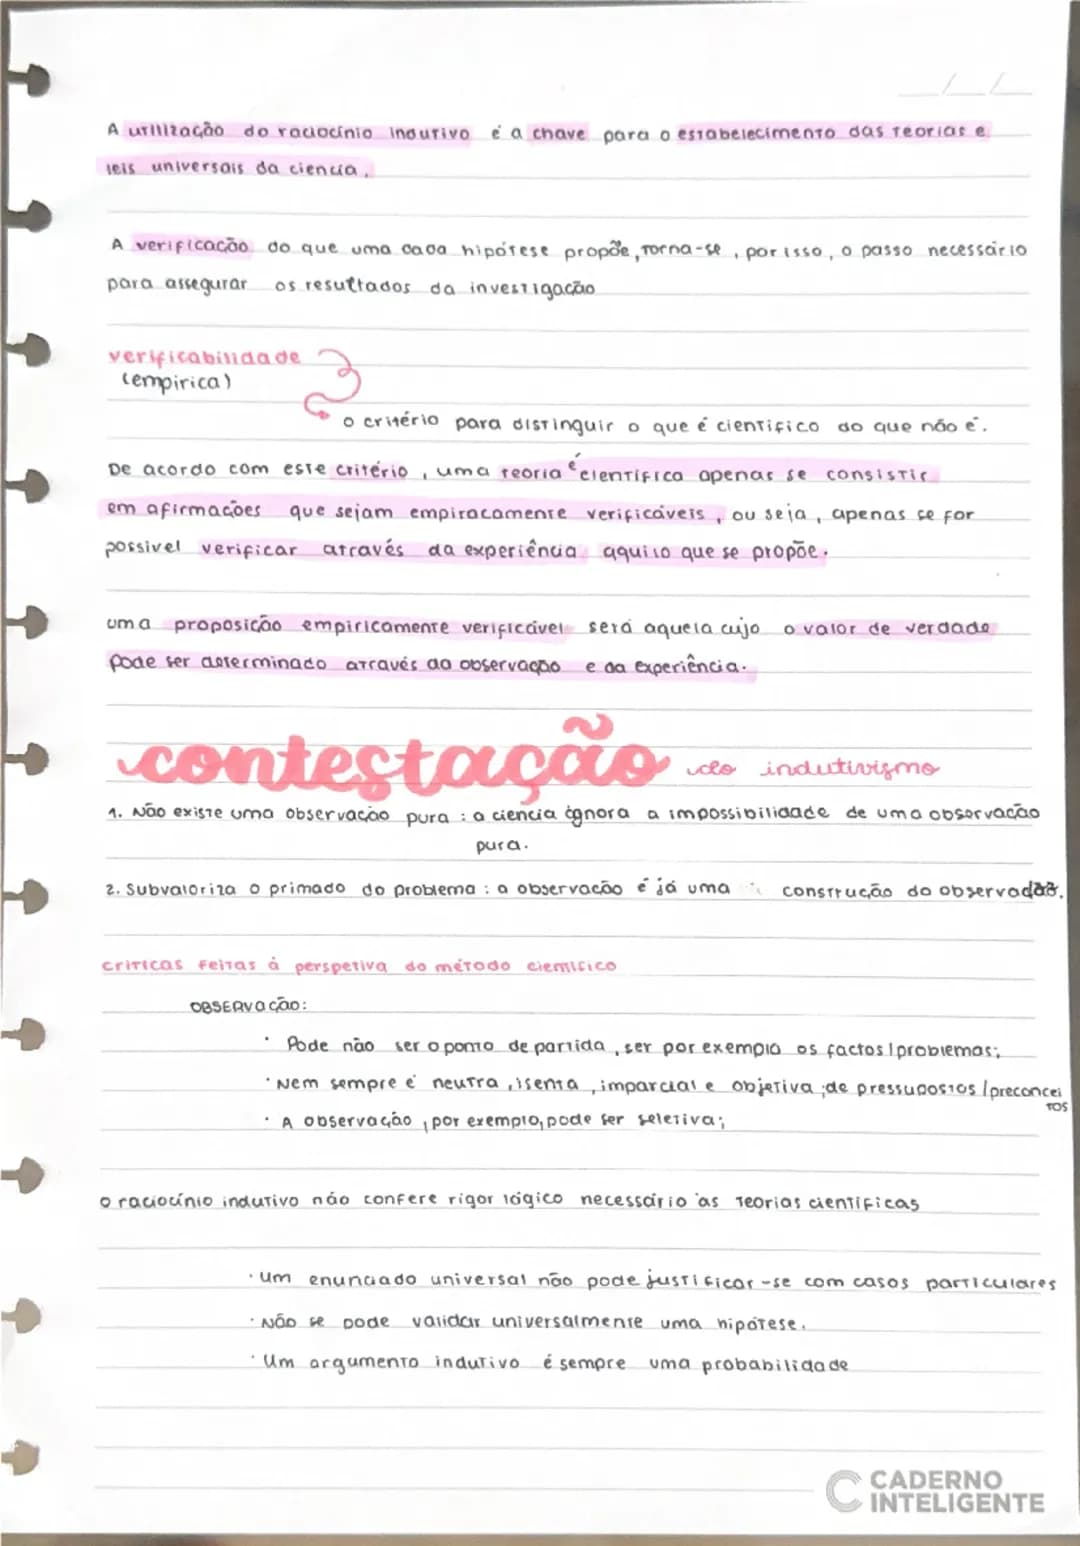 A utilização do raciocínio indutivo é a chave para o estabelecimento das teorias e
leis universais da ciencia.
A verificação do que uma dada hipótese propõe, torna-se, por isso, o passo necessário
para assegurar os resultados da investigação
verificabilidade
(empirica)
o critério para distinguir o que é cientifico do que não é.
De acordo com este critério, uma teoria é cientifica apenas se consistir
em afirmações que sejam empiracamente verificáveis, ou seja, apenas se for
possivel verificar através da experiência aquilo que se propõe.
uma proposição empiricamente verificável será aquela cujo o valor de verdade
pode ser determinado através da observação e da experiência.
contestação do indutivismo
1. Não existe uma observação pura : a ciencia ignora a impossibilidade de uma observação
pura.
2. Subvaloriza o primado do problema : a observação é já uma construção do observador.
criticas feitas à perspetiva do método cientifico
OBSERVAção:
· Pode não ser o ponto de partida, ser por exemplo os factos/problemas;
· Nem sempre é neutra, isenta, imparcial e objetiva; de pressupostos/preconcei
tos
· A observação, por exemplo, pode ser seletiva;
o raciocínio indutivo não confere rigor lógico necessário às teorias cientificas
· um enunciado universal não pode justificar-se com casos particulares
· Não se pode validar universalmente uma hipótese.
· Um argumento indutivo é sempre uma probabilidade
CADERNO
INTELIGENTE